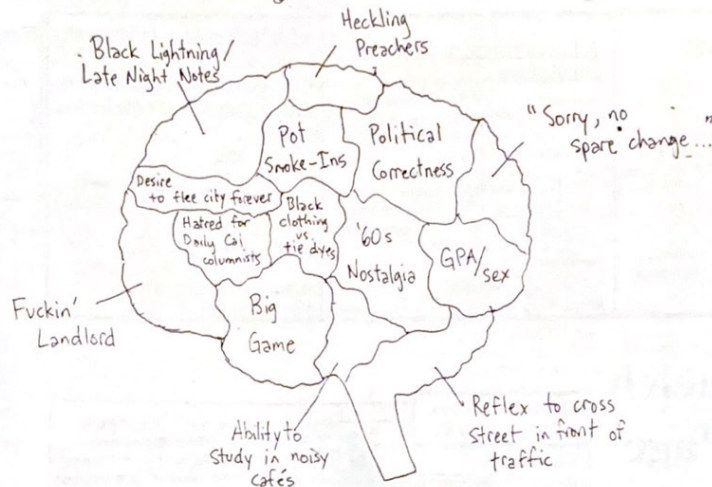 Heckling
Preachers
Black Lightning/
Late Night Notes
"Sorry, no
spare change..."
Pot
Smoke-Ins
Political
Correctness
Desire
to flee city forever
Hatred for
Daily Cal
columnists
Black
clothing
vs.
tie dyes
'60s
Nostalgia
GPA/
sex
Big
Game
Fuckin'
Landlord
Ability to
Study in noisy
cafés
Reflex to cross
street in front of
traffic